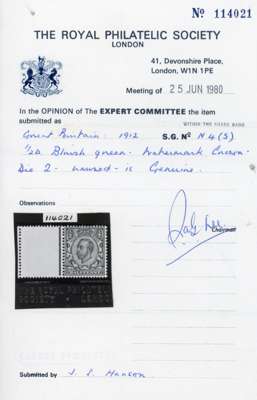 Nº 114021
THE ROYAL PHILATELIC SOCIETY
LONDON
41, Devonshire Place,
London, W1N 1PE
Meeting of 25 JUN 1980
In the OPINION of The EXPERT COMMITTEE the item
submitted as
Great Britain: 1912 S.G. Nº N4(S)
½d Bluish green. Watermark Crown.
Die 2 - unused - is Genuine.
Observations
114021
Chairman
THE ROYAL PHILATELIC
SOCIETY LONDON
Submitted by J. L. Manson